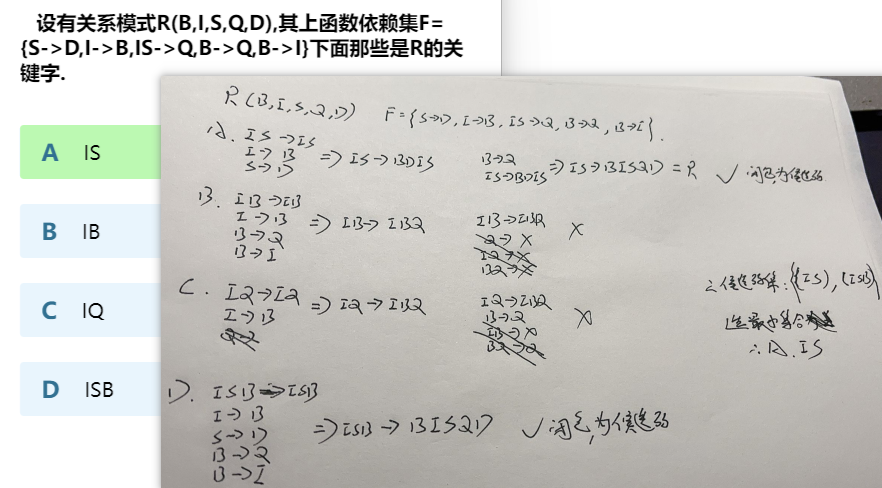 设有关系模式R(B,I,S,Q,D),其上函数依赖集F=
{S->D,I->B,IS->Q,B->Q,B->I}下面那些是R的关
键字.
A IS
B IB
C IQ
D ISB
R(B,I,S,Q,D) F={S→D,I→B,IS→Q,B→Q,B→I}.
A. IS→IS
I→B
S→D
=> IS→BDIS
B→Q
IS→BDIS
=> IS→BISQD=R
✓ 闭包,为候选码
B. IB→IB
I→B
B→Q
B→I
=> IB→IBQ
IB→IBQ
Q→X
IQ→X
BQ→X
X
C. IQ→IQ
I→B
=> IQ→IBQ
IQ→IBQ
B→Q
IB→X
BQ→Q
X
D. ISB→ISB
I→B
S→D
B→Q
B→I
=> ISB→BISQD ✓闭包,为候选码
∴候选码集:{(IS),(ISB)}
选最小集合
∴A. IS